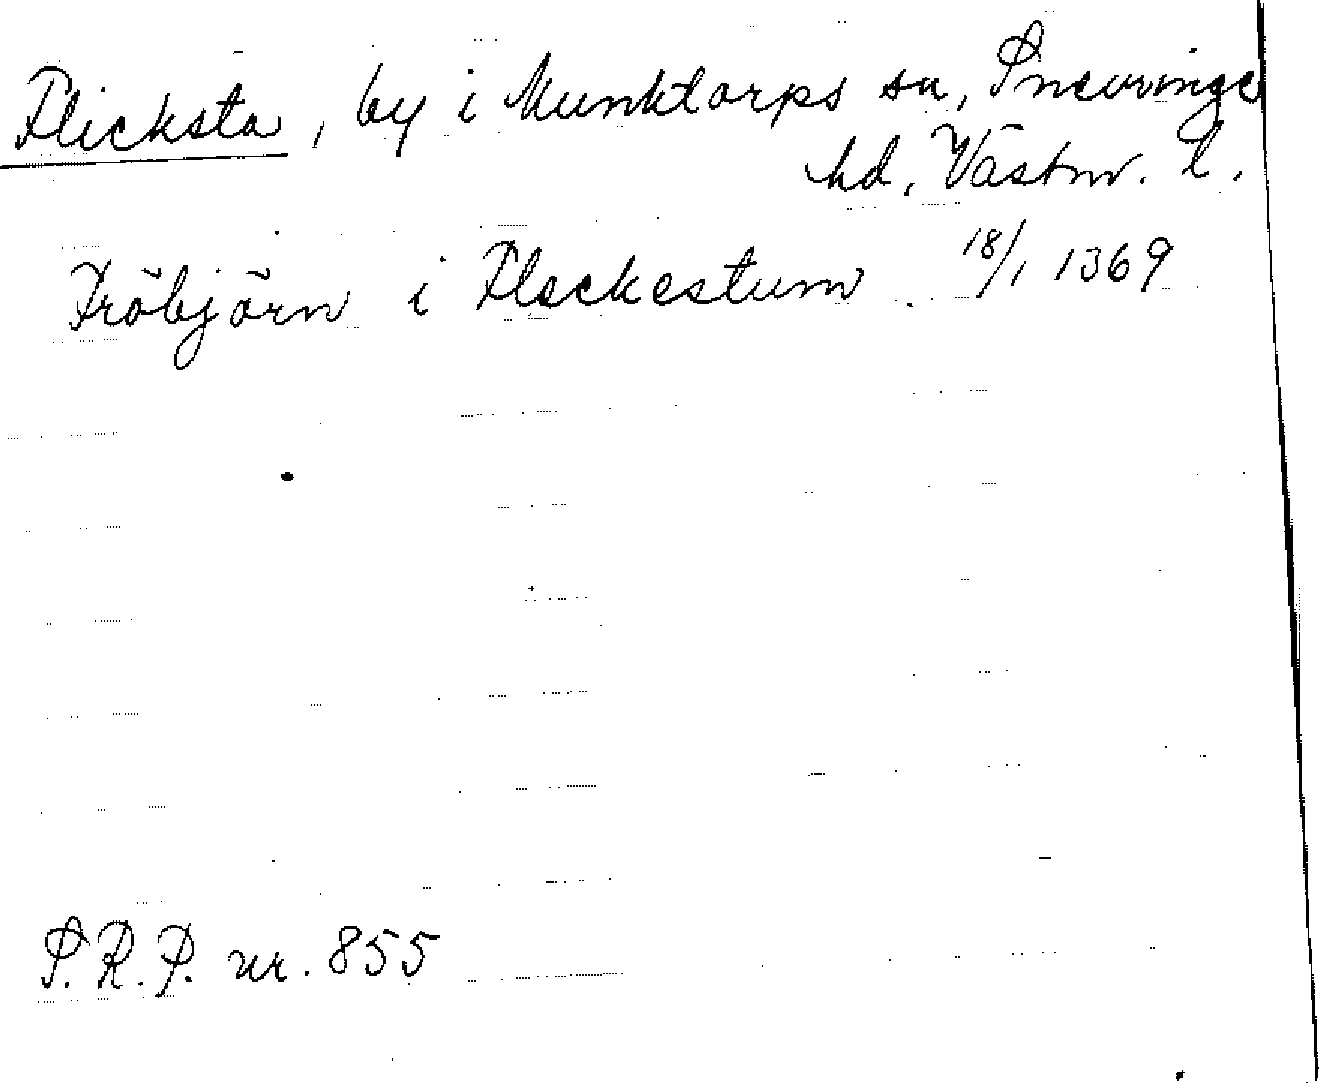 Flicksta, by i Munktorps sn, Snevringe
hd, Västm. l.
Fröbjörn i Fleckestum 18/1 1369
S.R.P. nr. 855